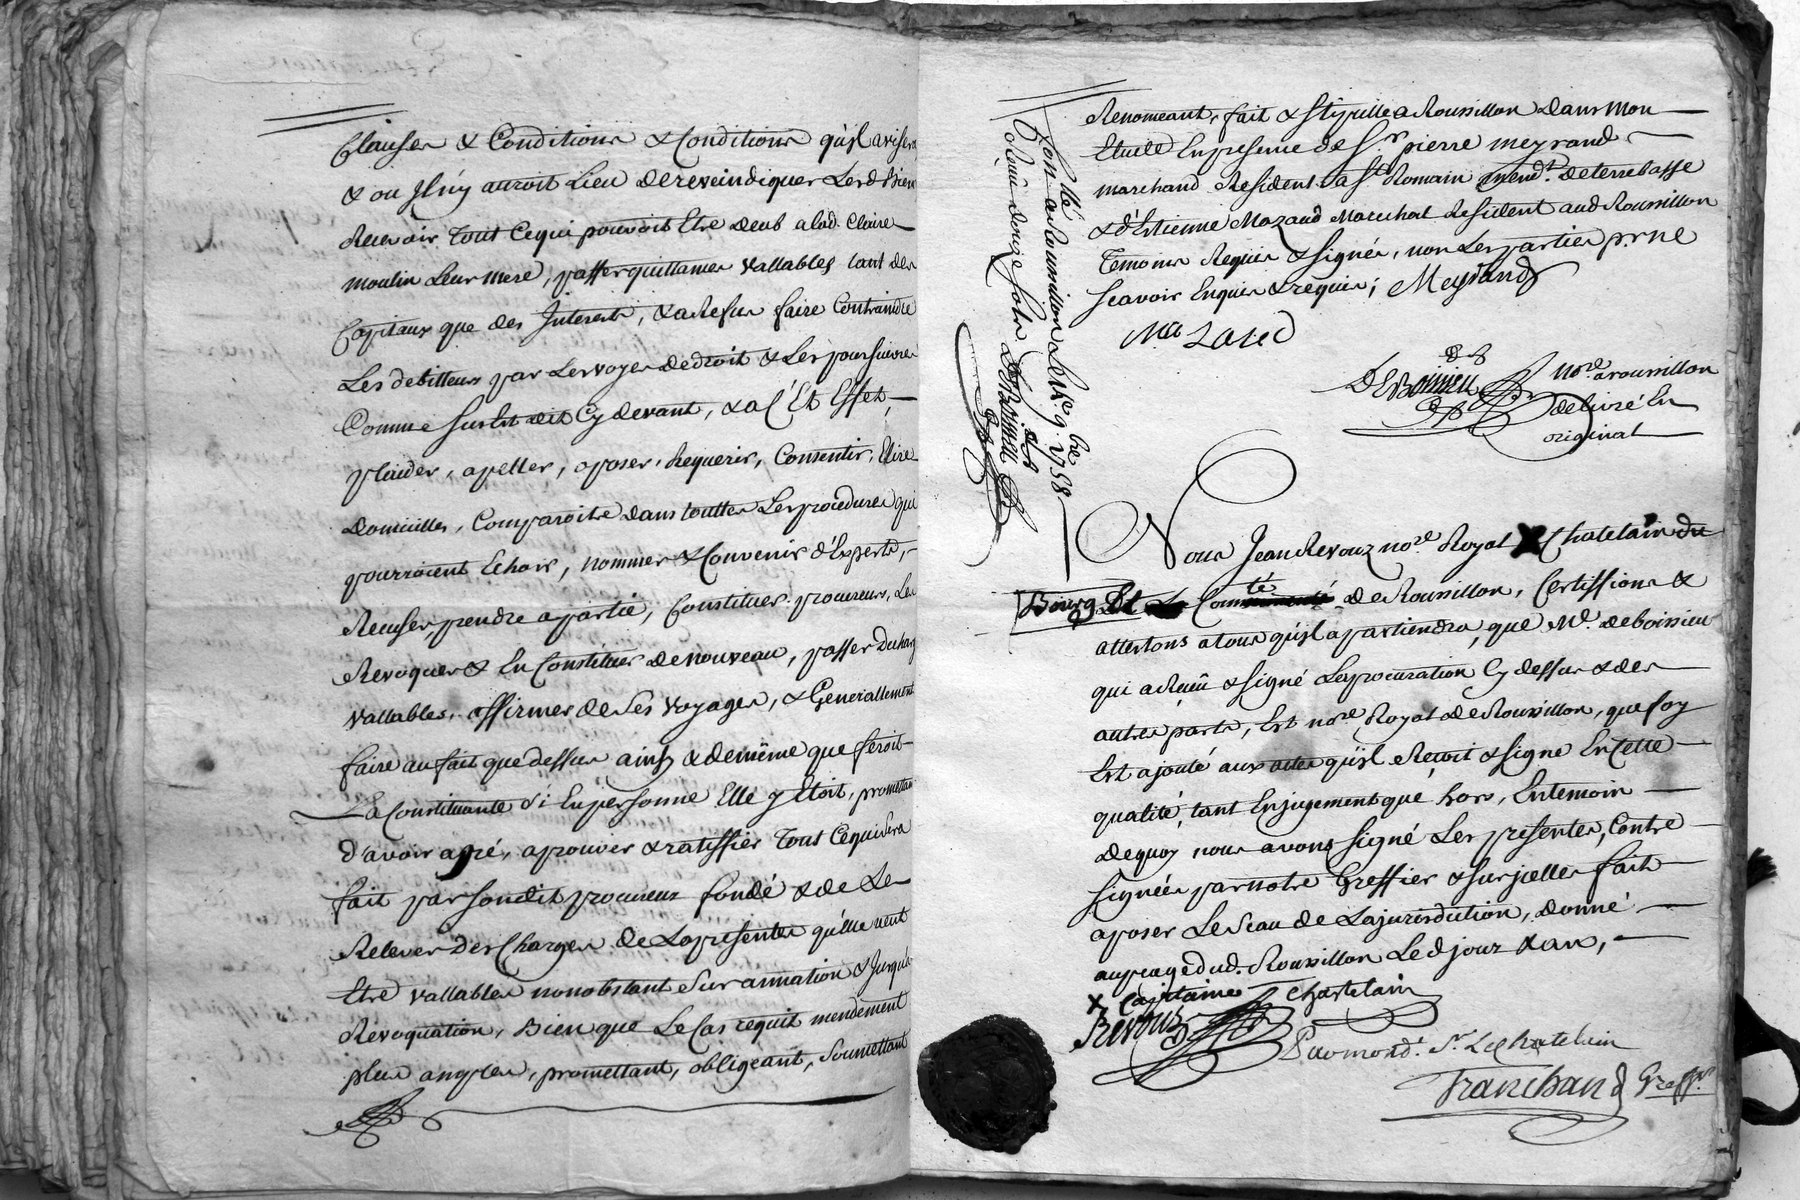 Clauses & Conditions & Conditions qu'jl avisera
& ou Jl n'y auroit Lieu de reveindiquer Lesd. Bien
Recevoir Tout Cequi pouvoit Etre deub a lad. Claire
moulin Leur mere, passer quittances vallables tant des
Capitaux que des Interests, & a Refus faire Contraindre
Les debitteurs par Les voyes de droit & Les poursuivre
Comme sus Est dit Cy devant, & a C'Et Effet,
plaider, apeller, oposer, Requerir, Consentir, Elire
domicilles, Comparoitre dans touttes Les procedures qui
pourroient Echoir, nommer & Convenir d'Experts,
Recuser, prendre a partie, Constituer procureurs, Les
Revoquer & En Constituer de nouveau, passer Decharg
vallables, affirmer de Ses voyages, & Generallement
faire au fait que dessus ainsy & de même que feroit
La Constituante Si En personne Elle y Etoit, promettan
d'avoir agré, aprouver & ratiffier Tout Cequi Sera
fait par Son dit procureur fondé & de Le
Relever Des Charges de La presente qu'elle veut
Etre vallables nonobstant Surannation & Jusqu'a
Revoquation, Bien que Le Cas requit mendement
plus amples, promettant, obligeant, Soumettant
Renonceant, fait & Stipulle a Roussillon dans mon
Etude En presence de Sr. pierre meyrand
marchand Resident a St. Romain mend.t de terrebasse
& d'Estienne Mazaud Marechal Resident aud Roussillon
Temoins Requis & signés, non Les parties p.r ne
Scavoir Enquis & requis; Meyrand
Mazaud
DeBoissieu nore. a roussillon
delivré En
original
Con.llé a Roussillon Le xe. 9bre 1758
Reçu douze sols DeBoissieu
Nous Jean Revouz nore. Royal X Chatelain du
Bourg Et Comté de Roussillon, Certiffions &
attestons a tous qu'jl apartiendra, que Me. deboissieu
qui a Reçû & signé La procuration Cy dessus & des
autres parts, Est nore. Royal de Roussillon, que foy
Est ajouté aux actes qu'jl Reçoit & signe En Cette
qualité, tant En jugement que hors, En temoin
de quoy nous avons signé Les presentes, Contre
Signées par notre Greffier & sur jcelles fait
aposer Le Seau de La jurisdiction, donné
au peage dud. Roussillon Le d jour & an,
X Capitaine Chastelain
Revouz
Par mond. Sr. Le Chatelain
Tranchand Greffr.